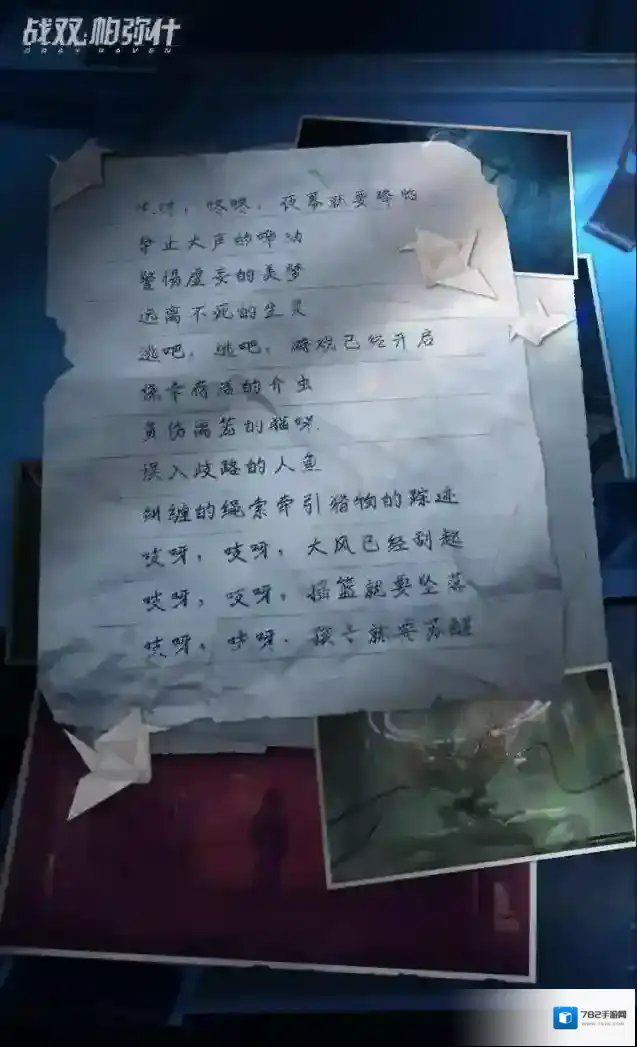 战双帕弥什
GRAY RAVEN
咚咚，夜幕就要降临
禁止大声的哗动
警惕虚妄的美梦
远离不死的生灵
逃吧，逃吧，游戏已经开启
的介虫
负伤 的猫咪
误入歧路的人鱼
纠缠的绳索牵引猎物的踪迹
吱呀，吱呀，大风已经刮起
吱呀，吱呀，摇篮就要坠落
吱呀，吱呀，孩子就要苏醒
782手游网